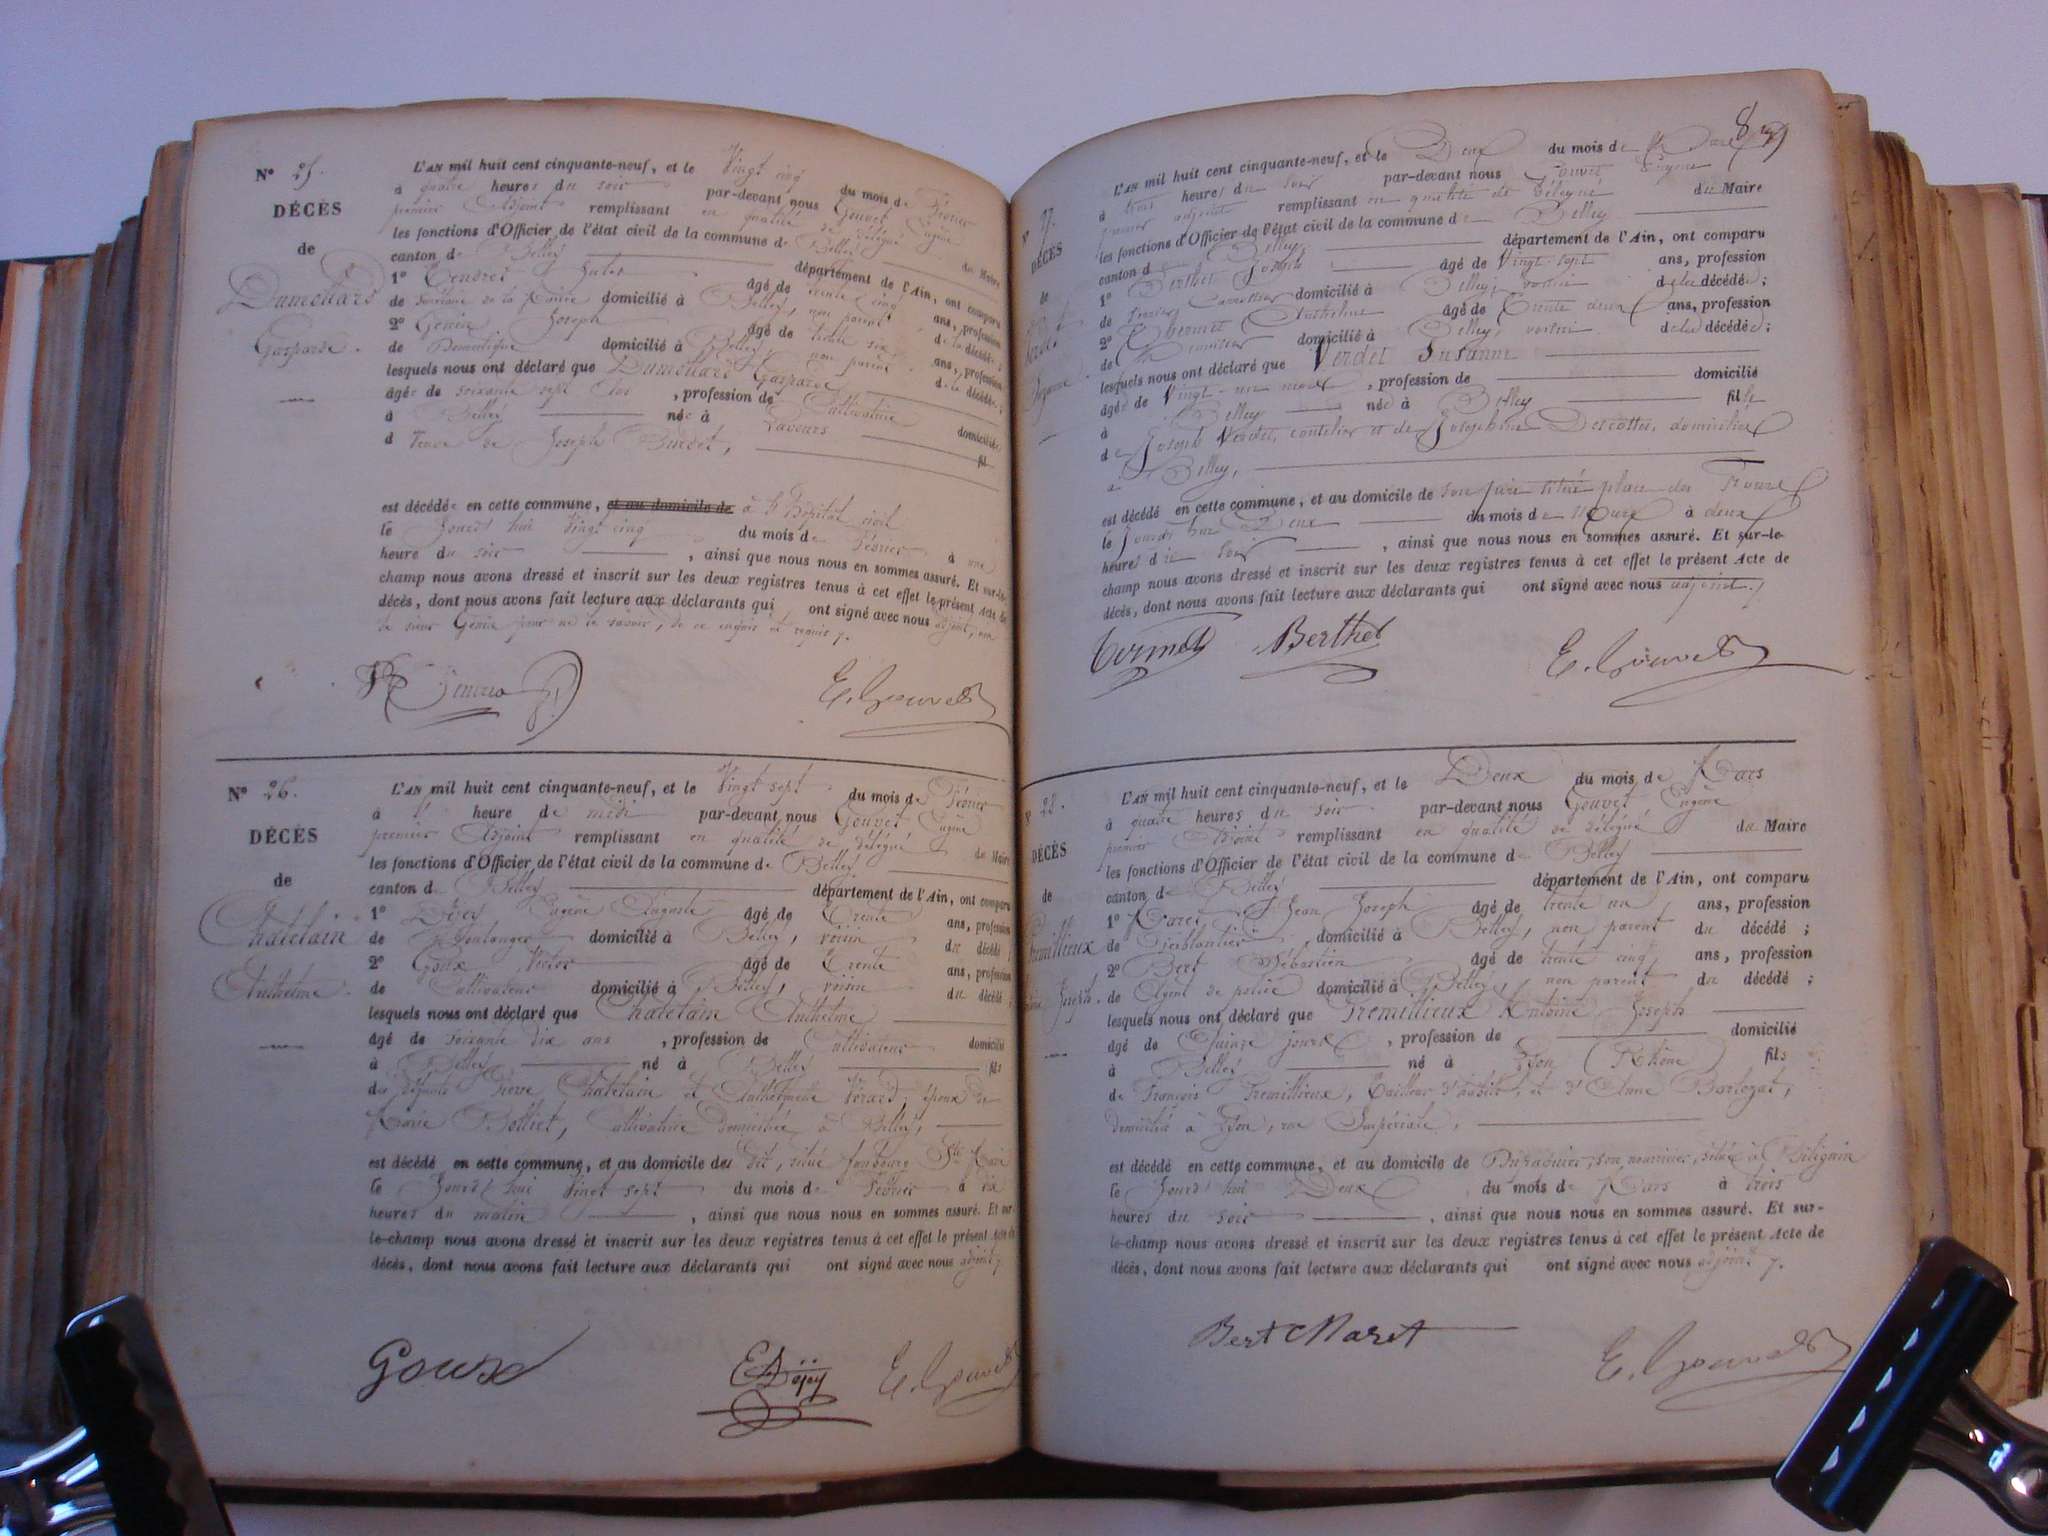 N° 25.
DÉCÈS
de
Dumollard
Gasparde.
L'AN mil huit cent cinquante-neuf, et le Vingt cinq du mois de Février
à quatre heures du soir par-devant nous Gouvet Eugène
premier Adjoint remplissant en qualité de délégué du Maire
les fonctions d'Officier de l'état civil de la commune de Belley
canton de Belley département de l'Ain, ont comparu
1° Jules âgé de trente cinq ans, profession
de domicilié à Belley, non parent de la décédée;
2° Génin Joseph âgé de trente six ans, profession
de Domestique domicilié à Belley, non parent de la décédée;
lesquels nous ont déclaré que Dumollard Gasparde
âgée de soixante sept ans, profession de Cultivatrice domiciliée
à Belley née à Laveurs fil
d Veuve de Joseph Burdet,
est décédée en cette commune, et au domicile de à l'Hôpital civil
le Jourd'hui Vingt cinq du mois de Février à une
heure du soir, ainsi que nous nous en sommes assuré. Et sur-le-
champ nous avons dressé et inscrit sur les deux registres tenus à cet effet le présent Acte de
décès, dont nous avons fait lecture aux déclarants qui ont signé avec nous adjoint, non
le sieur Génin pour ne le savoir, de ce enquis et requis ./.
E. Gouvet
N° 26.
DÉCÈS
de
Chatelain
Anthelme.
L'AN mil huit cent cinquante-neuf, et le Vingt sept du mois de Février
à l' heure de midi par-devant nous Gouvet Eugène
premier Adjoint remplissant en qualité de délégué du Maire
les fonctions d'Officier de l'état civil de la commune de Belley
canton de Belley département de l'Ain, ont comparu
1° Déjey Eugène Auguste âgé de Trente ans, profession
de Boulanger domicilié à Belley, voisin du décédé;
2° Goux Victor âgé de Trente ans, profession
de Cultivateur domicilié à Belley, voisin du décédé;
lesquels nous ont déclaré que Chatelain Anthelme
âgé de soixante dix ans, profession de Cultivateur domicilié
à Belley né à Belley fils
des défunts Pierre Chatelain et Anthelmette époux de
Marie Bolliet, Cultivatrice domiciliée à Belley,
est décédé en cette commune, et au domicile du dit, situé faubourg St
le Jourd'hui Vingt sept du mois de Février à dix
heures du matin, ainsi que nous nous en sommes assuré. Et sur-
le-champ nous avons dressé et inscrit sur les deux registres tenus à cet effet le présent Acte de
décès, dont nous avons fait lecture aux déclarants qui ont signé avec nous adjoint ./.
Goux E Déjey E. Gouvet
N° 27.
DÉCÈS
de
Verdet
Suzanne
L'AN mil huit cent cinquante-neuf, et le Deux du mois de Mars
à trois heures du soir par-devant nous Gouvet Eugène
premier adjoint remplissant en qualité de Délégué du Maire
les fonctions d'Officier de l'état civil de la commune de Belley
canton de Belley, département de l'Ain, ont comparu
1° Berthet Joseph âgé de Vingt-sept ans, profession
de domicilié à Belley, voisin de la décédée;
2° Anthelme âgé de Trente deux ans, profession
de Menuisier domicilié à Belley, voisin de la décédée;
lesquels nous ont déclaré que Verdet Suzanne
âgée de Vingt-un mois, profession de domicilié
à Belley née à Belley fille
de Joseph Verdet, coutelier et de Joséphine Descottes, domiciliés
à Belley,
est décédé en cette commune, et au domicile de son père situé place des Terreaux
le Jourd'hui Deux du mois de Mars à deux
heures du soir, ainsi que nous nous en sommes assuré. Et sur-le-
champ nous avons dressé et inscrit sur les deux registres tenus à cet effet le présent Acte de
décès, dont nous avons fait lecture aux déclarants qui ont signé avec nous adjoint ./.
Berthet E. Gouvet
28.
DÉCÈS
de
Tremillieux
Antoine Joseph.
L'AN mil huit cent cinquante-neuf, et le Deux du mois de Mars
à quatre heures du soir par-devant nous Gouvet Eugène
premier Adjoint remplissant en qualité de délégué du Maire
les fonctions d'Officier de l'état civil de la commune de Belley
canton de Belley département de l'Ain, ont comparu
1° Maret Jean Joseph âgé de trente un ans, profession
de Ferblantier, domicilié à Belley, non parent du décédé;
2° Bert Sébastien âgé de trente cinq ans, profession
de Agent de police domicilié à Belley, non parent du décédé;
lesquels nous ont déclaré que Tremillieux Antoine Joseph
âgé de Quinze jours, profession de domicilié
à Belley né à Lyon (Rhône) fils
de François Tremillieux, Tailleur d'habits, et d'Anne Barlozat,
domiciliés à Lyon, rue Impériale,
est décédé en cette commune, et au domicile de son nourricier, situé à Billignin
le Jourd'hui Deux du mois de Mars à trois
heures du soir, ainsi que nous nous en sommes assuré. Et sur-
le-champ nous avons dressé et inscrit sur les deux registres tenus à cet effet le présent Acte de
décès, dont nous avons fait lecture aux déclarants qui ont signé avec nous adjoint ./.
Bert Maret E. Gouvet